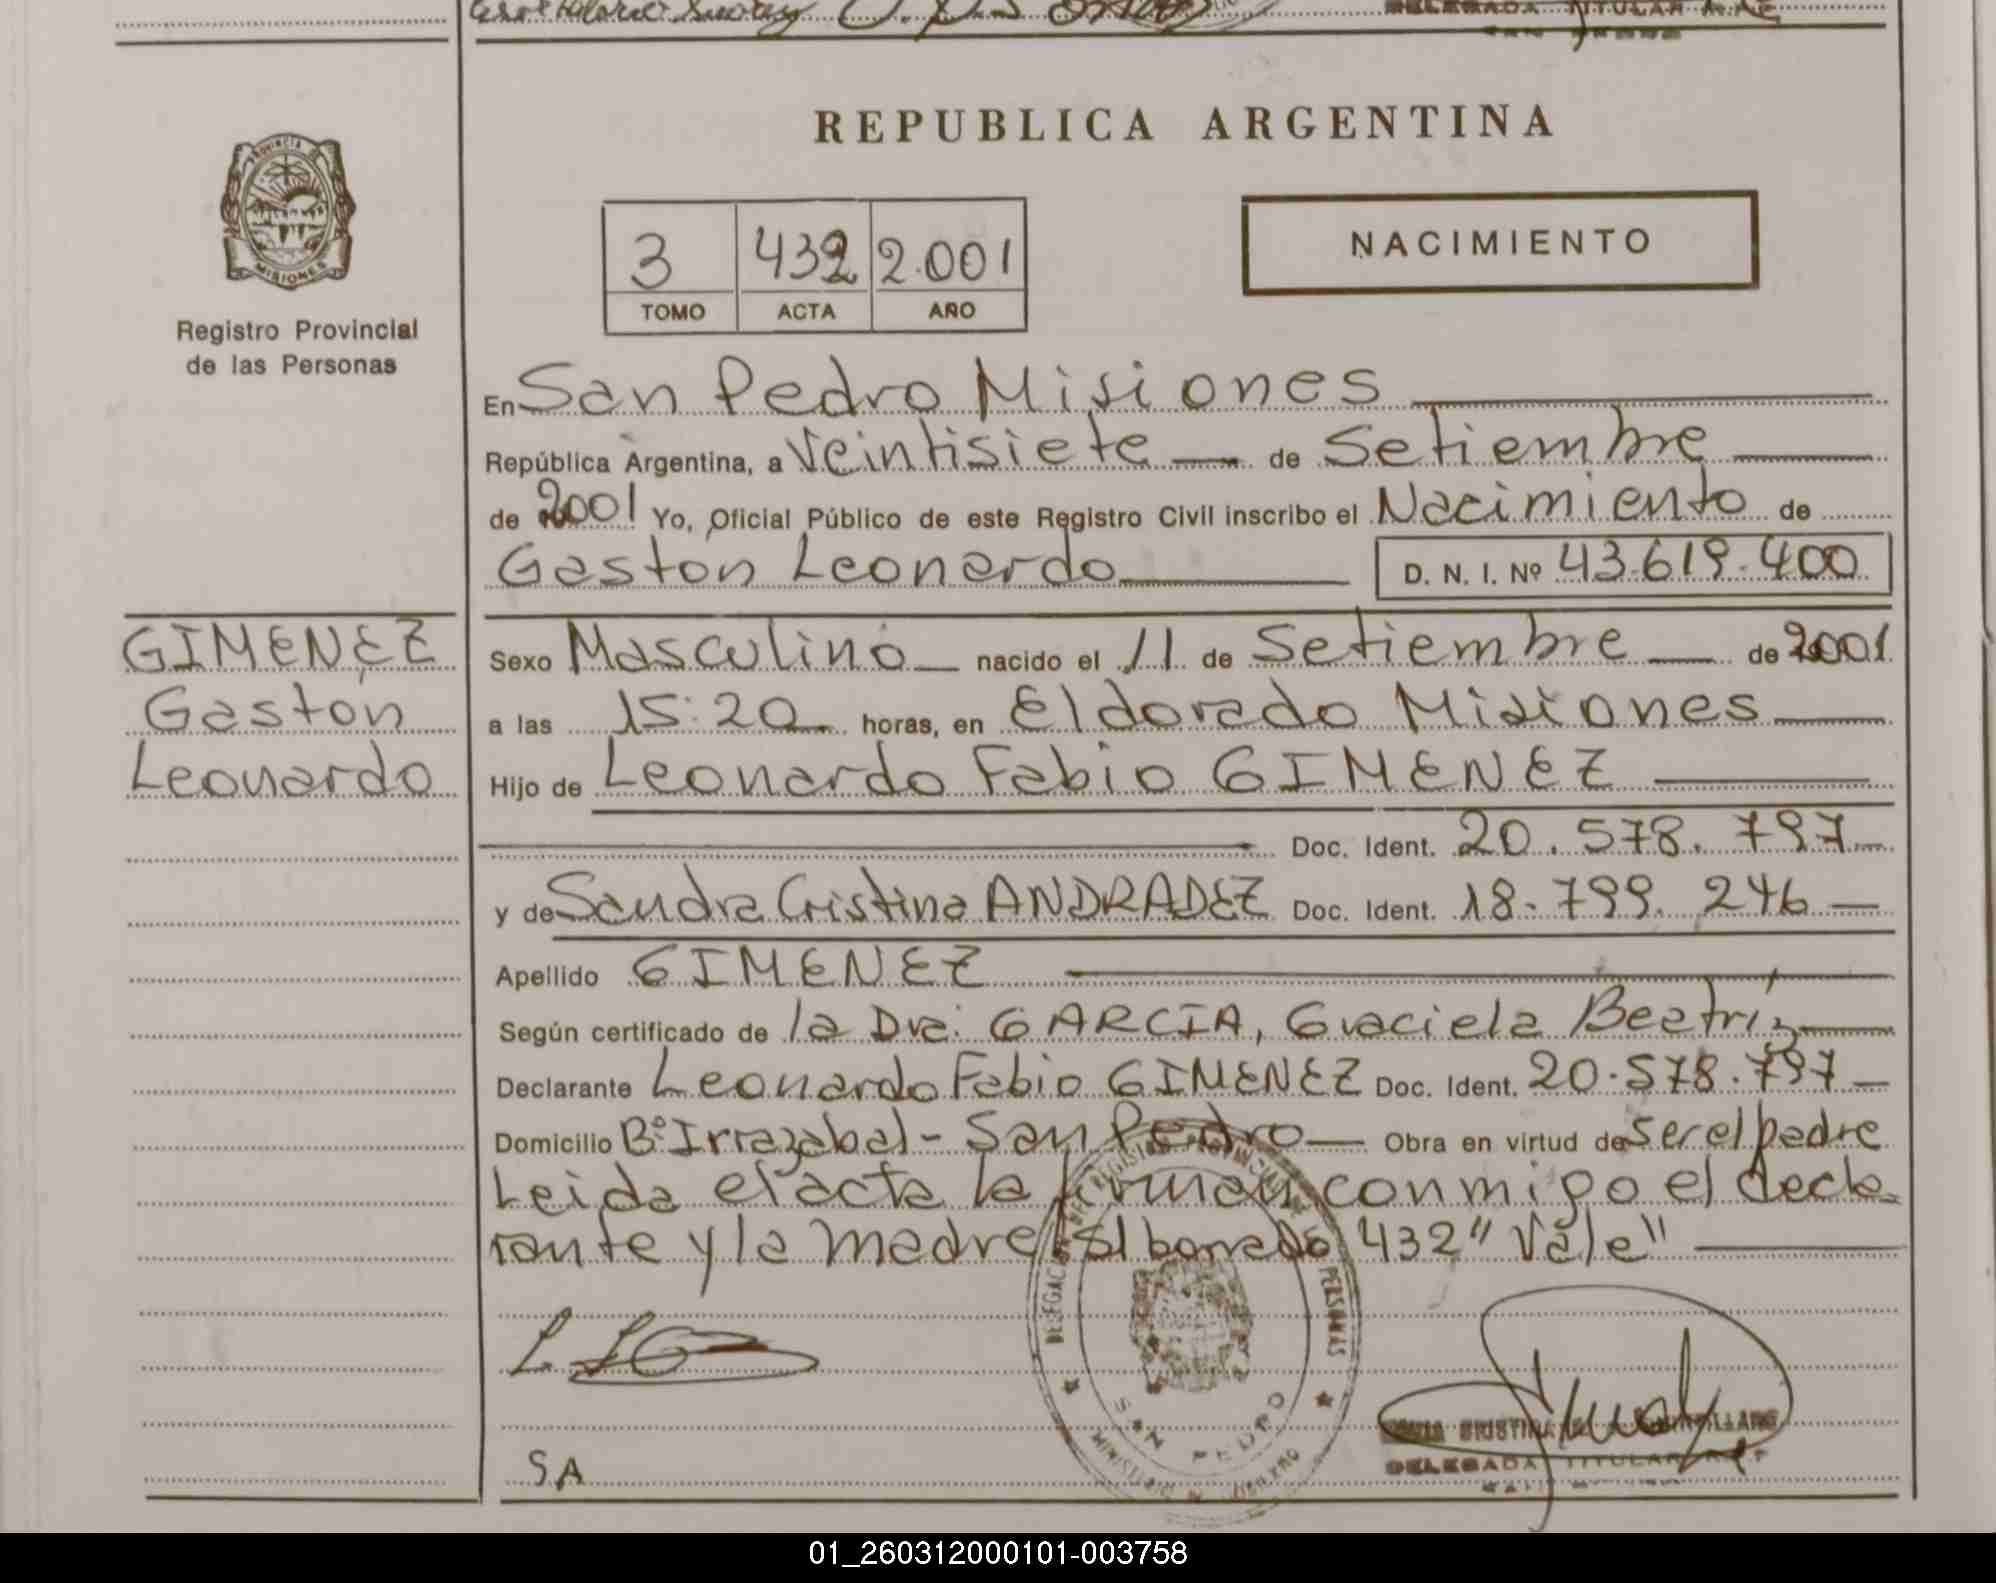 DELEGADA TITULAR
REPUBLICA ARGENTINA
PROVINCIA DE
MISIONES
Registro Provincial
de las Personas
3 432 2.001
TOMO ACTA AÑO
NACIMIENTO
En San Pedro Misiones
República Argentina, a Veintisiete de Setiembre
de 2001 Yo, Oficial Público de este Registro Civil inscribo el Nacimiento de
Gastón Leonardo D. N. I. Nº 43.619.400
GIMENEZ
Gastón
Leonardo
Sexo Masculino nacido el 11 de Setiembre de 2001
a las 15:20 horas, en Eldorado Misiones
Hijo de Leonardo Fabio GIMENEZ
Doc. Ident. 20.578.797
y de Sandra Cristina ANDRADEZ Doc. Ident. 18.799.246
Apellido GIMENEZ
Según certificado de la Dra. GARCIA, Graciela Beatríz
Declarante Leonardo Fabio GIMENEZ Doc. Ident. 20.578.797
Domicilio Bº Irrazabal - San Pedro Obra en virtud de ser el padre
Leida el acta la firman conmigo el decla-
rante y la madre Slborrado 432 "Vale"
SAN PEDRO
DELEGADA TITULAR
SA
01_260312000101-003758